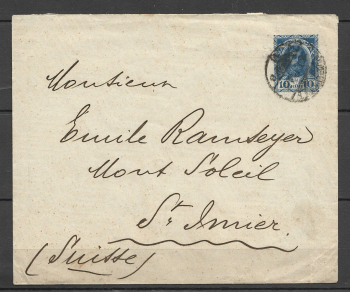 Monsieur
Emile Ramseyer
Mont Soleil
St. Imier.
(Suisse)
10 10